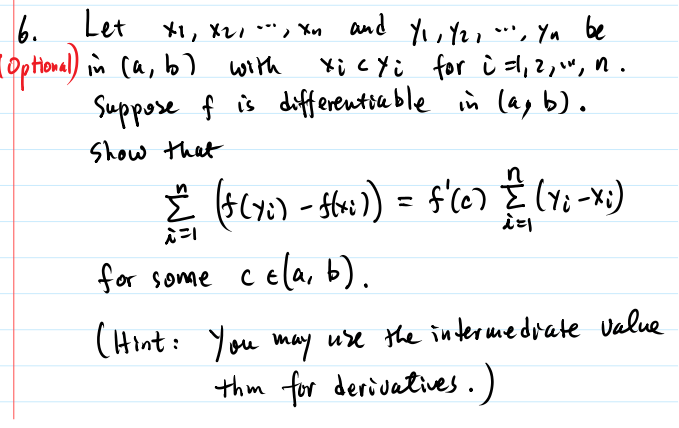 6. Let x₁, x₂, ..., xₙ and y₁, y₂, ..., yₙ be
(Optional) in (a, b) with xᵢ < yᵢ for i=1, 2, ..., n.
Suppose f is differentiable in (a, b).
Show that
∑ᵢ₌₁ⁿ (f(yᵢ) - f(xᵢ)) = f'(c) ∑ᵢ₌₁ⁿ (yᵢ - xᵢ)
for some c ∈ (a, b).
(Hint: You may use the intermediate value
thm for derivatives.)